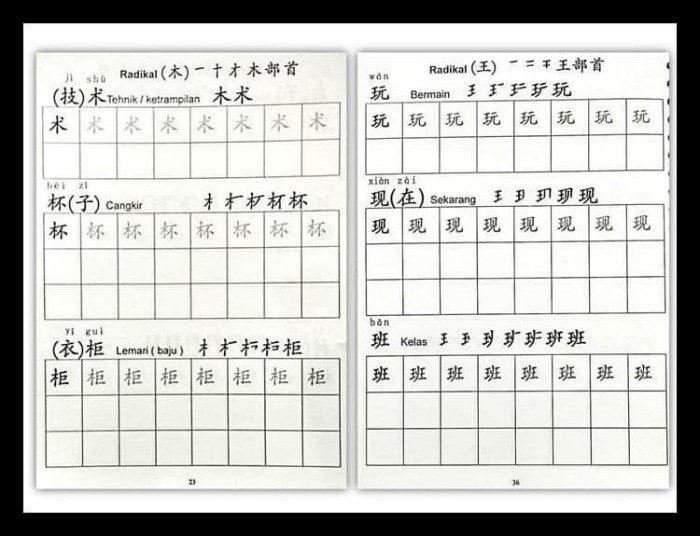 Radikal (木) 一 十 才 木 部首
jì shù
(技)术 Tehnik / ketrampilan 木 术
术 术 术 术 术 术 术 术
bēi zi
杯(子) Cangkir
杯 杯
杯 杯 杯 杯 杯 杯 杯 杯
yī guì
(衣)柜 Lemari ( baju )
柜
柜 柜 柜 柜 柜 柜 柜 柜
23
Radikal (王) 一 二 干 王 部首
wán
玩 Bermain 玩
玩 玩 玩 玩 玩 玩 玩 玩
xiàn zài
现(在) Sekarang 现
现 现 现 现 现 现 现 现
bān
班 Kelas 班
班 班 班 班 班 班 班 班
36